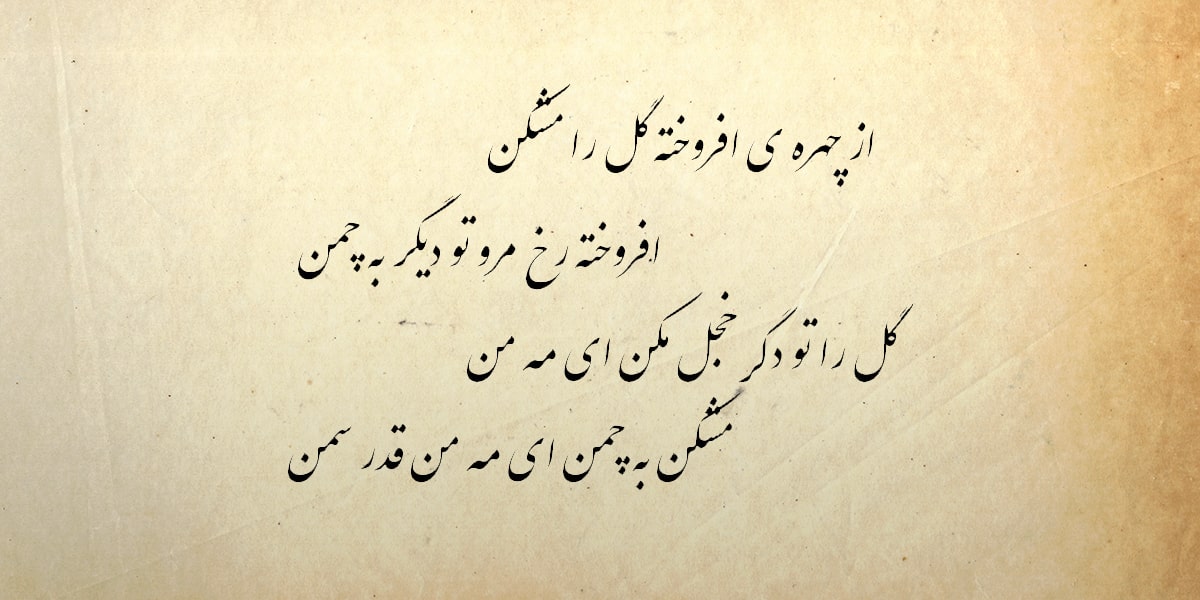 از چهره ی افروخته گل را مشکن
افروخته رخ مرو تو دیگر به چمن
گل را تو دگر خجل مکن ای مه من
مشکن به چمن ای مه من قدر سمن